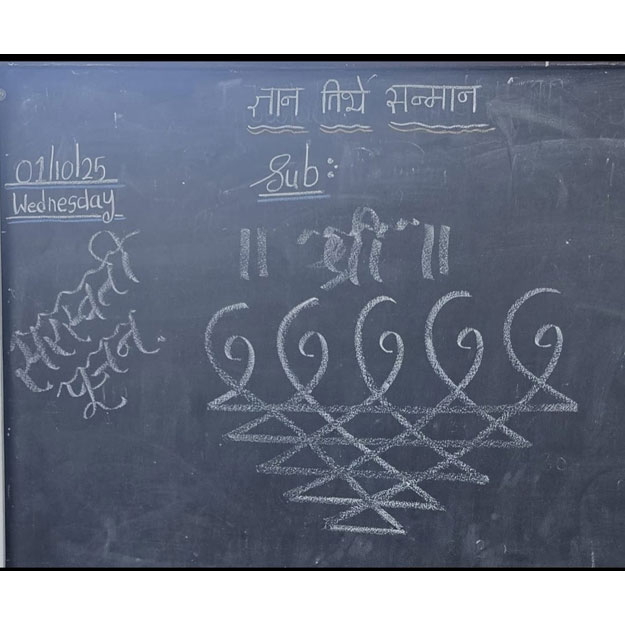 ज्ञान तिर्थे सन्मान
01/10/25
Wednesday
Sub:
सरस्वती
पूजन.
॥ श्री ॥